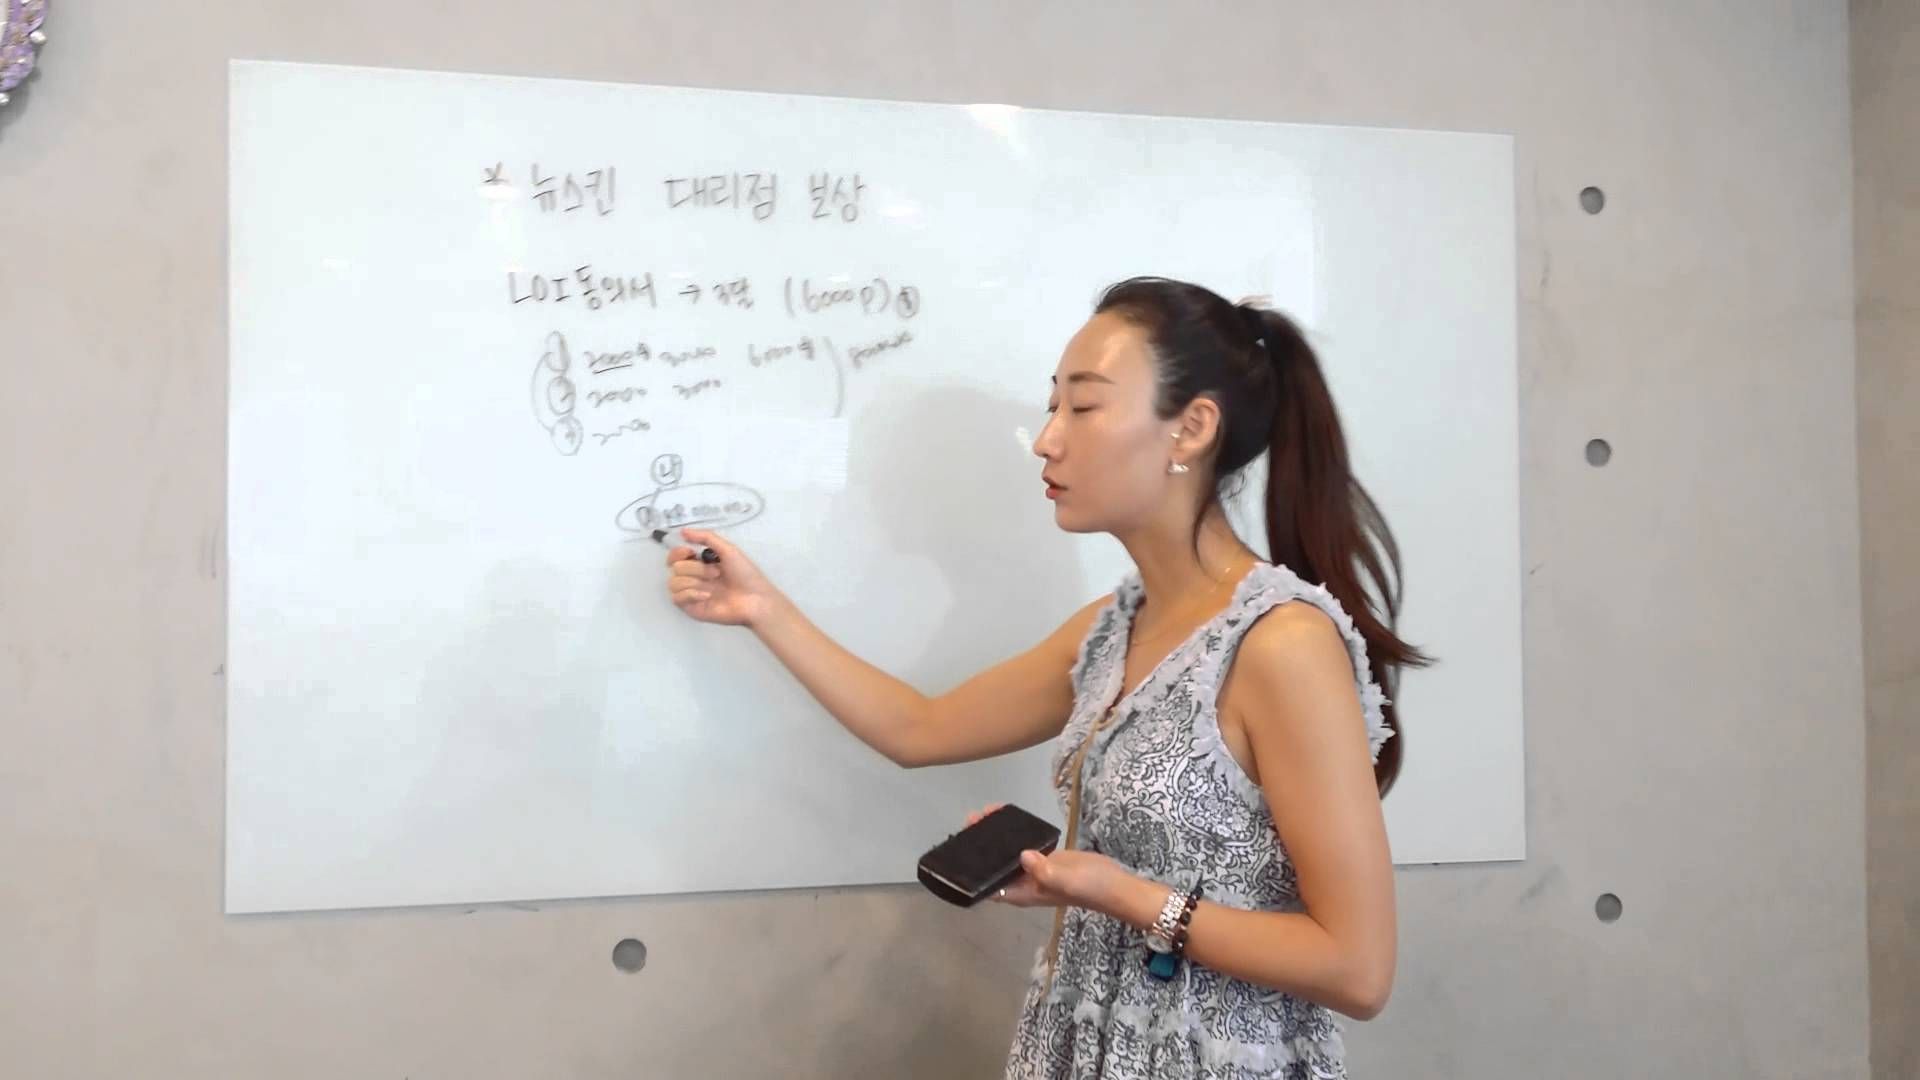 * 뉴스킨 대리점 보상
LOI동의서 → 3달 (6000P)
① 2000 3000 6000
② 2000 3000
2000
나